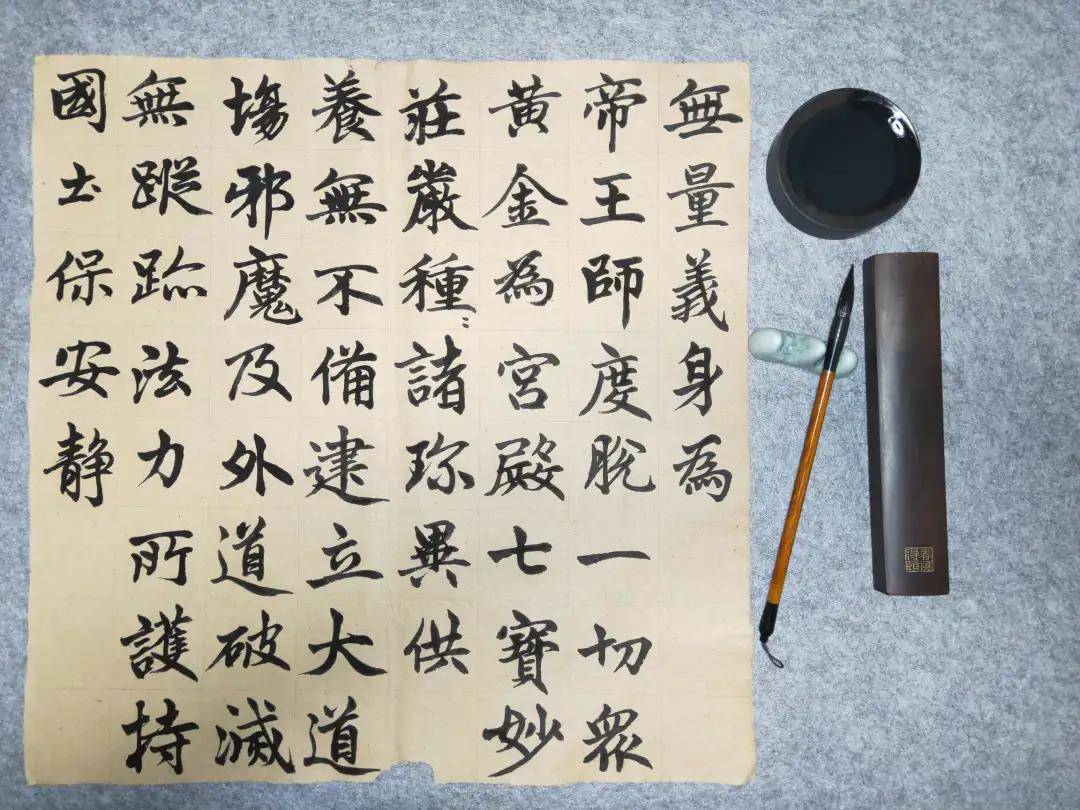 無量義身為
帝王師度脫一切眾
黃金為宮殿七寶妙
莊嚴種〻諸珎異供
養無不備建立大道
塲邪魔及外道破滅
無蹤跡法力所護持
國土保安靜
春風
得意